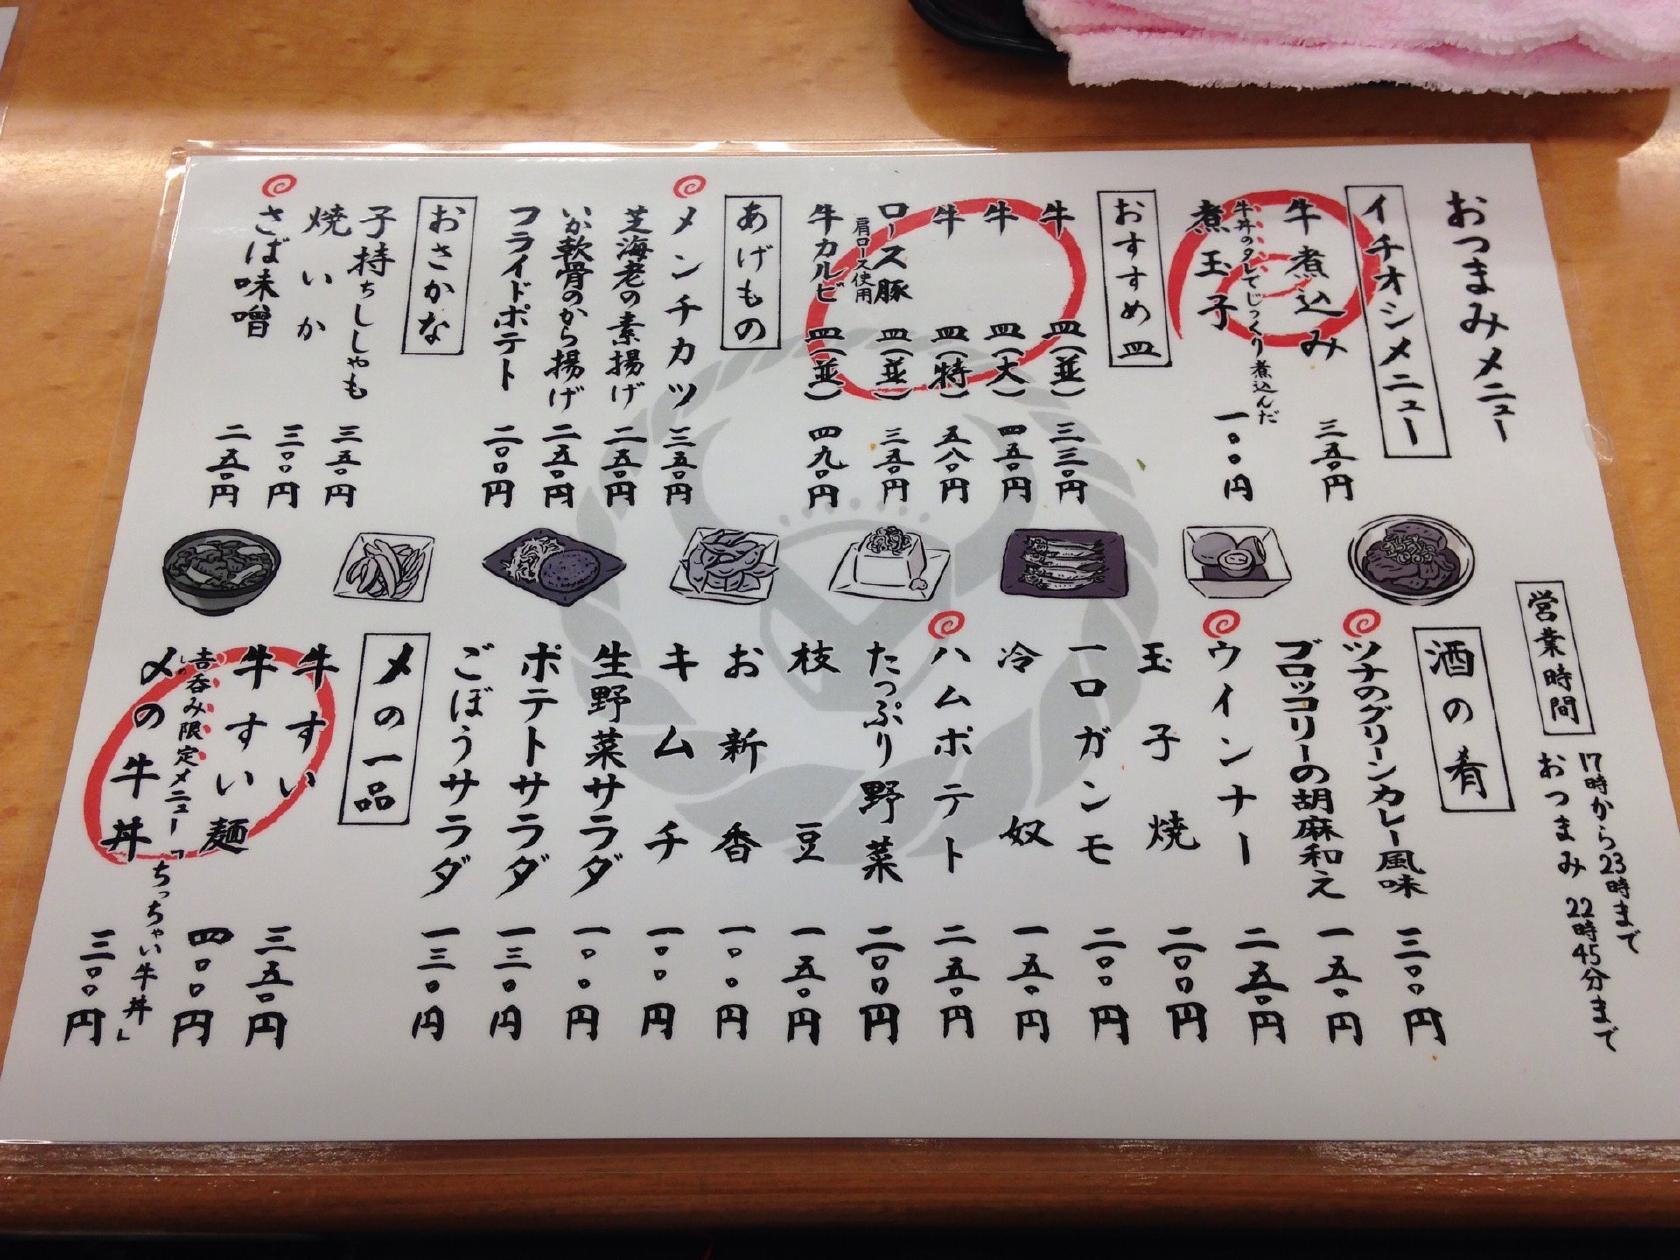 おつまみメニュー
イチオシメニュー
牛煮込み 三五〇円
牛丼のタレでじっくり煮込んだ
煮玉子 一〇〇円
おすすめ皿
牛皿(並) 三三〇円
牛皿(大) 四五〇円
牛皿(特) 五八〇円
ロース豚皿(並) 三五〇円
肩ロース使用
牛カルビ皿(並) 四九〇円
あげもの
メンチカツ 三五〇円
芝海老の素揚げ 二五〇円
いか軟骨のから揚げ 二五〇円
フライドポテト 二〇〇円
おさかな
子持ちししゃも 三五〇円
焼いか 三〇〇円
さば味噌 二五〇円
営業時間
17時から23時まで
おつまみ 22時45分まで
酒の肴
ツナのグリーンカレー風味 三〇〇円
ブロッコリーの胡麻和え 一五〇円
ウインナー 二五〇円
玉子焼 二〇〇円
一口ガンモ 二〇〇円
冷奴 一五〇円
ハムポテト 二五〇円
たっぷり野菜 二〇〇円
枝豆 一五〇円
お新香 一〇〇円
キムチ 一〇〇円
生野菜サラダ 一〇〇円
ポテトサラダ 一三〇円
ごぼうサラダ 一三〇円
〆の一品
牛すい 三五〇円
牛すい麺 四〇〇円
吉呑み限定メニュー「ちっちゃい牛丼」
〆の牛丼 三〇〇円